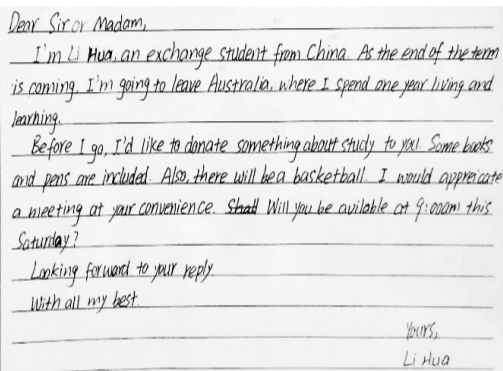 Dear Sir or Madam,
I'm Li Hua, an exchange student from China. As the end of the term
is coming, I'm going to leave Australia, where I spend one year living and
learning.
Before I go, I'd like to donate something about study to you. Some books
and pens are included. Also, there will be a basketball. I would appreicate
a meeting at your convenience. Shall Will you be avilable at 9:00am this
Saturday?
Looking forward to your reply.
With all my best.
Yours,
Li Hua